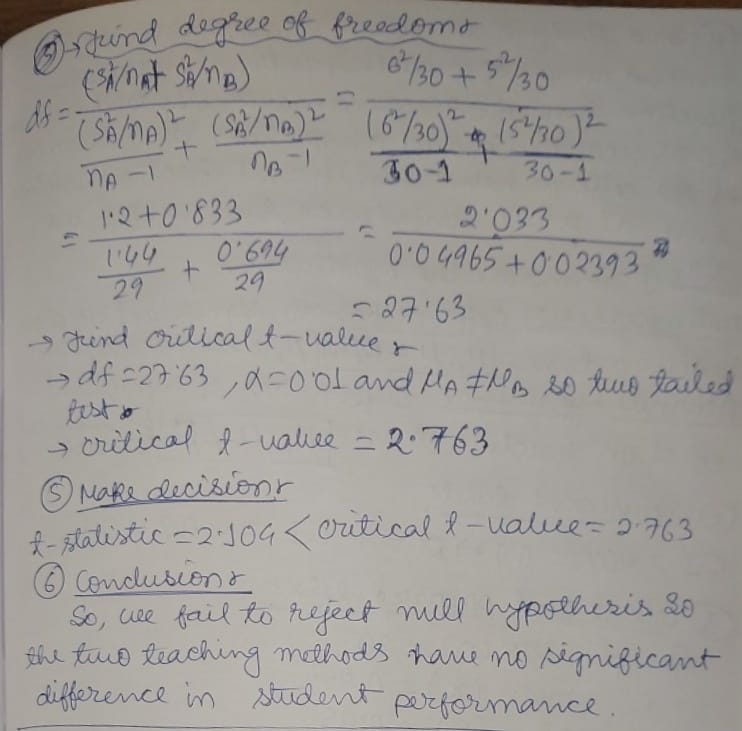 ③→ Find degree of freedom:
df = (S²A/nA + S²A/nB) / ((S²A/nA)²/(nA-1) + (S²B/nB)²/(nB-1)) = (6²/30 + 5²/30) / ((6²/30)²/(30-1) + (5²/30)²/(30-1))
= (1.2+0.833) / (1.44/29 + 0.694/29) = 2.033 / (0.04965+0.02393)
= 27.63
→ Find critical t-value:
→ df = 27.63, α=0.01 and μA ≠ μB so two tailed
test
→ critical t-value = 2.763
⑤ Make decision:
t-statistic = 2.104 < critical t-value = 2.763
⑥ Conclusion:
So, we fail to reject null hypothesis so
the two teaching methods have no significant
difference in student performance.